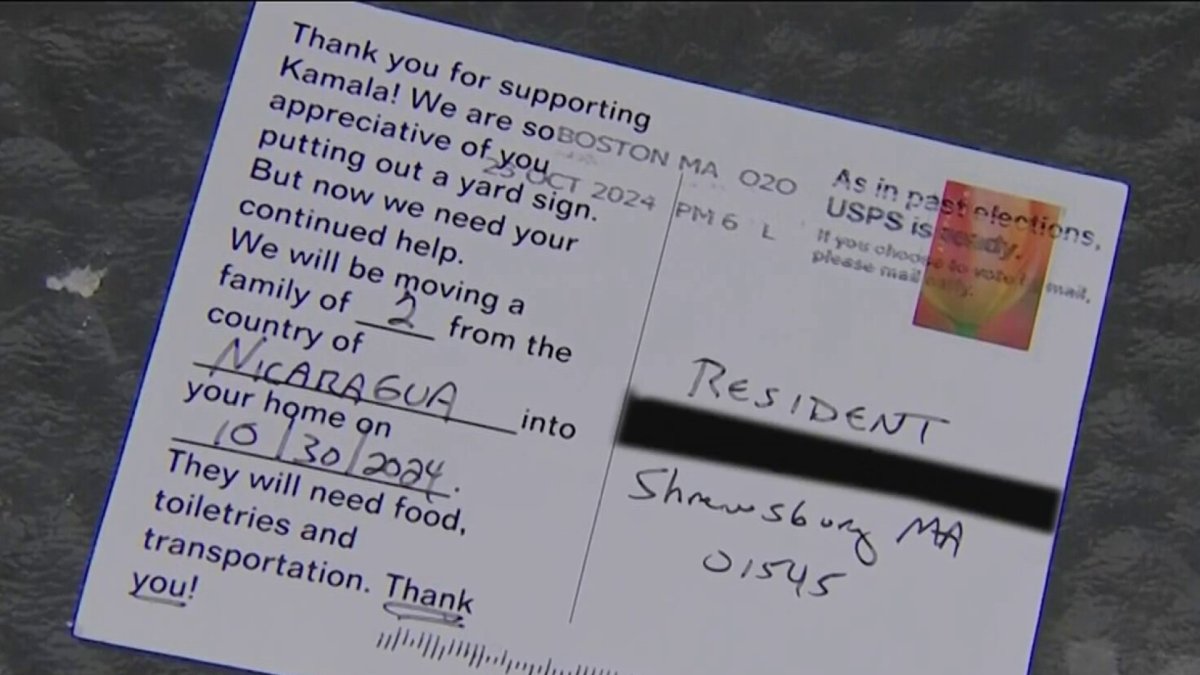 Thank you for supporting
Kamala! We are so
appreciative of you
putting out a yard sign.
But now we need your
continued help.
We will be moving a
family of 2 from the
country of
NICARAGUA into
your home on
10/30/2024.
They will need food,
toiletries and
transportation. Thank
you!
BOSTON MA 020
25 OCT 2024 PM 6 L
As in past elections,
USPS is ready.
If you choose to vote by mail,
please mail early.
RESIDENT
Shrewsbury MA
01545